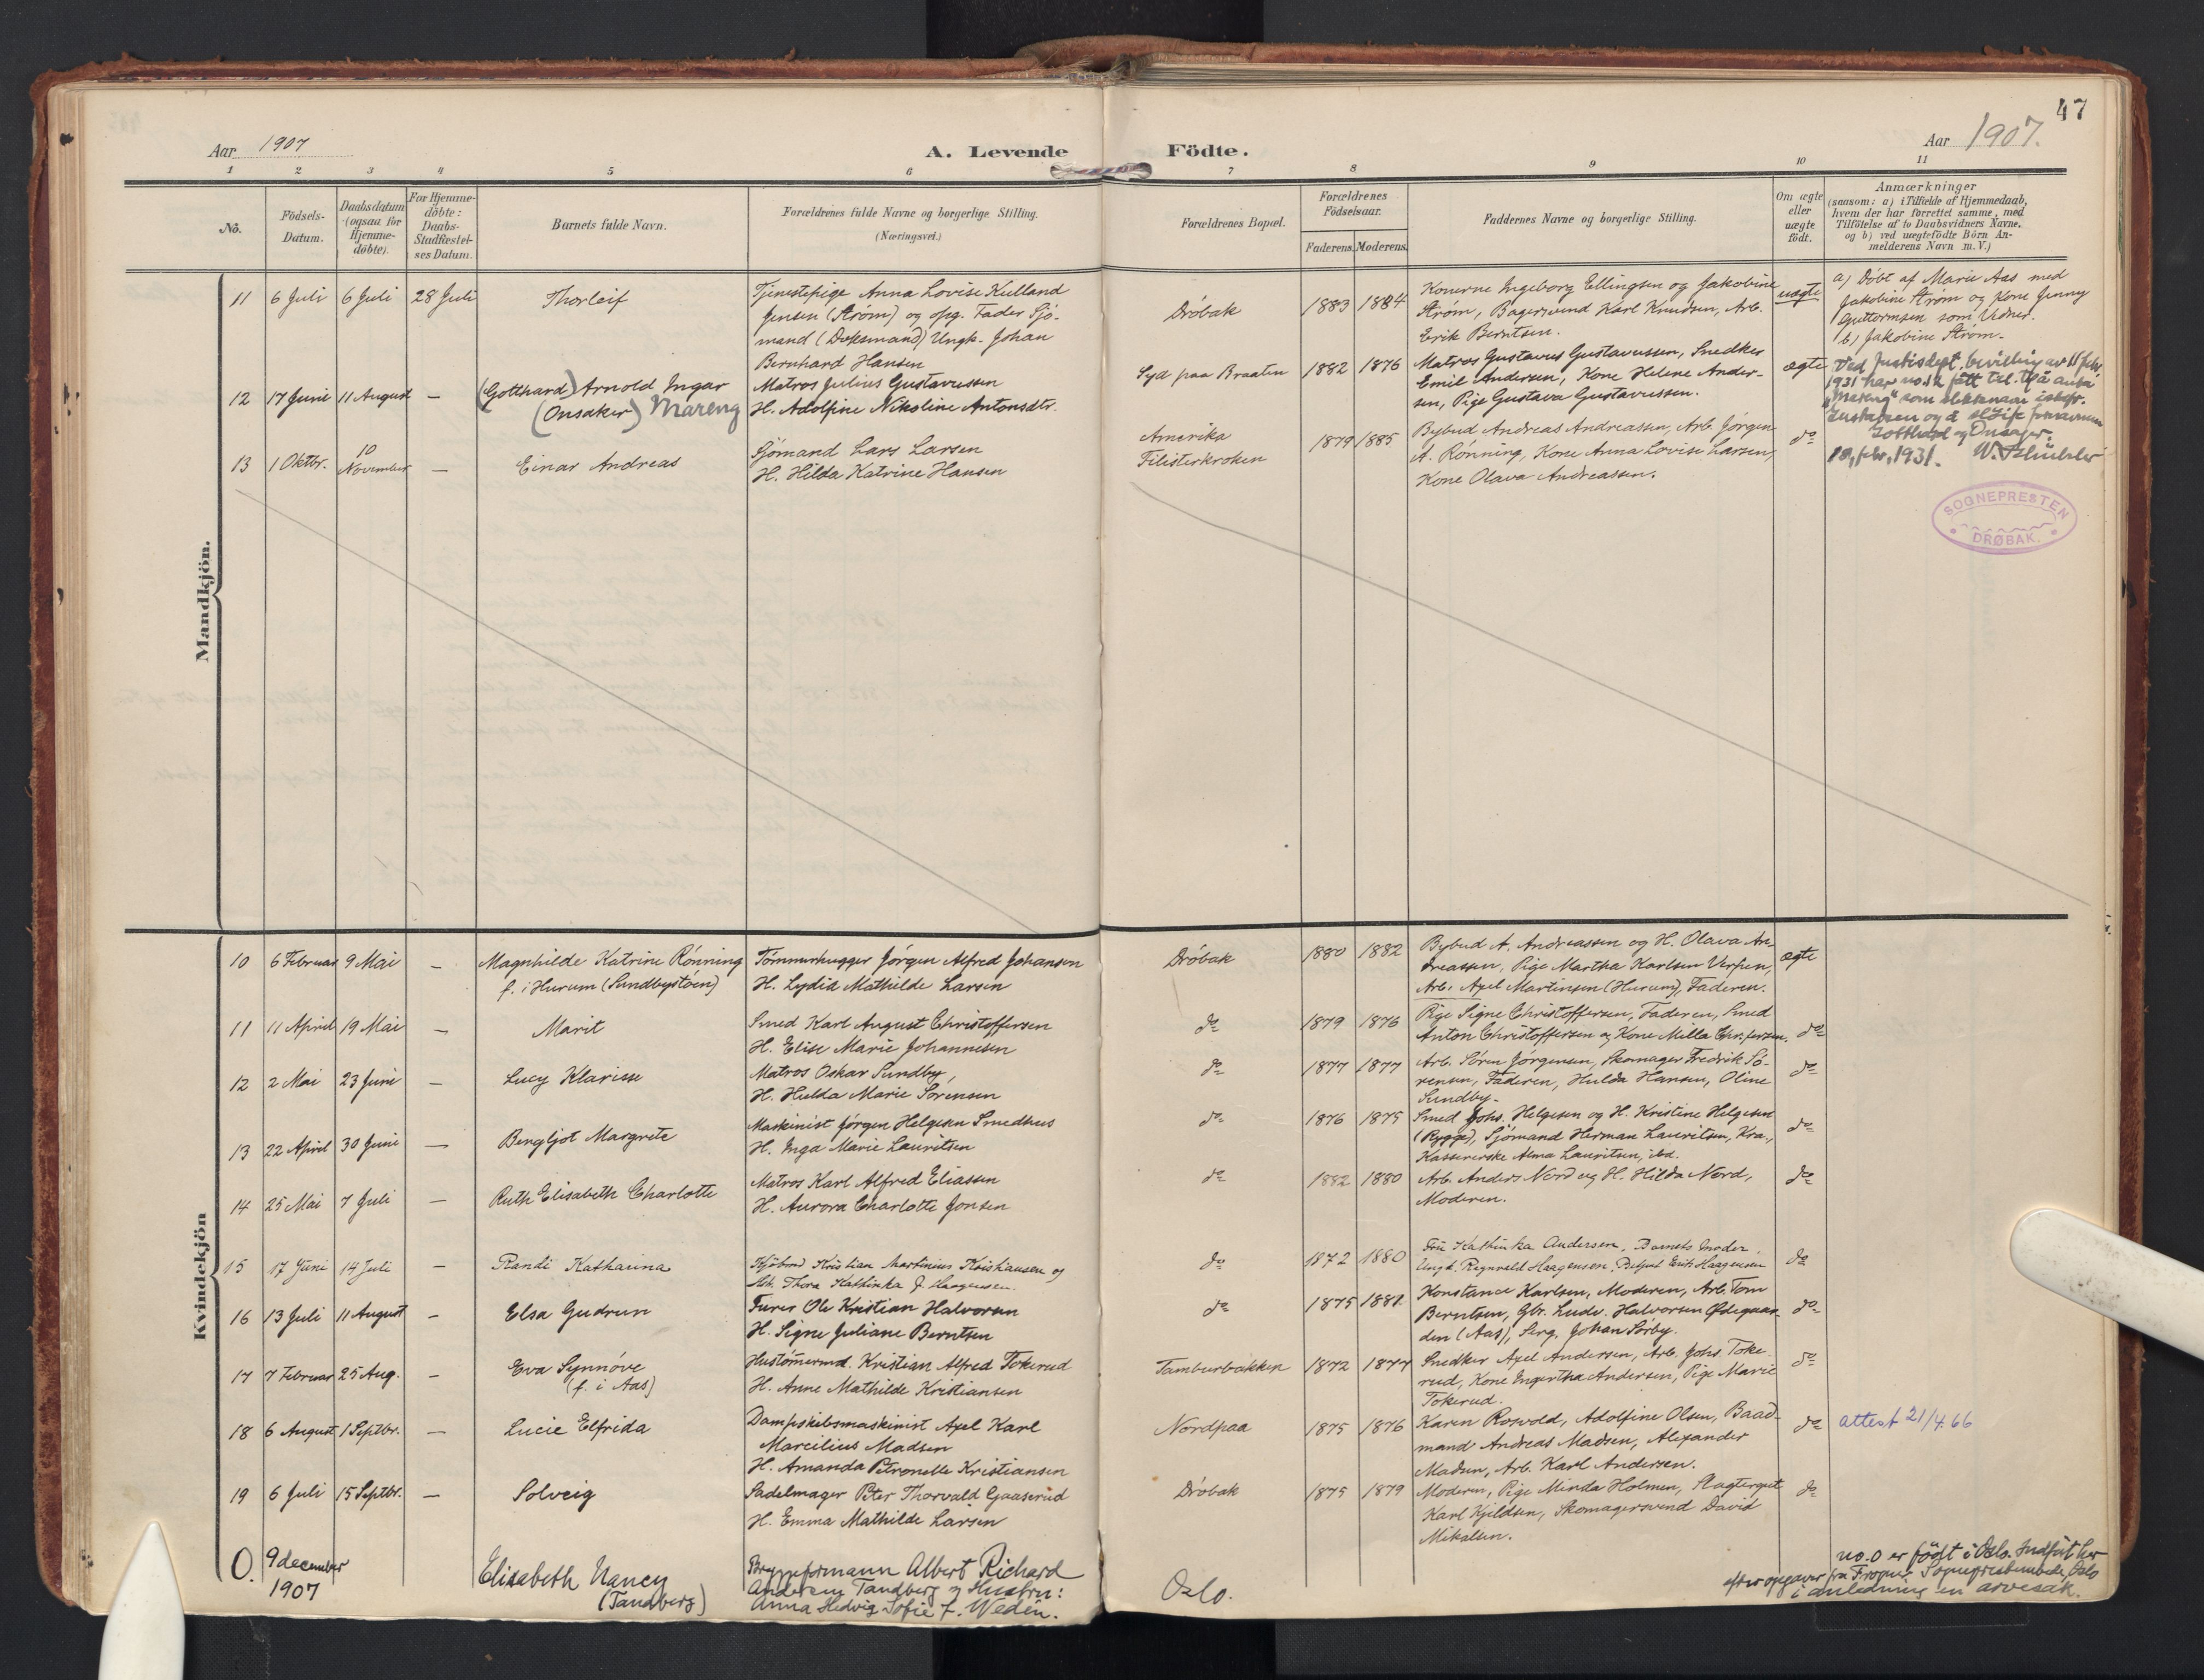 47
Aar 1907
A. Levende Födte.
Aar 1907.
1 2 3 4 5 6 7 8 9 10 11
No.
Födsels-Datum.
Daabsdatum (ogsaa for Hjemme-döbte).
For Hjemme-döbte: Daabs-Stadfæstel-ses Datum.
Barnets fulde Navn.
Forældrenes fulde Navne og borgerlige Stilling.
(Næringsvei.)
Forældrenes Bopæl.
Forældrenes Födselsaar.
Faderens. Moderens.
Faddernes Navne og borgerlige Stilling.
Om ægte eller uægte födt.
Anmærkninger
(saasom: a) i Tilfælde af Hjemmedaab,
hvem der har forrettet samme, med
Tilföielse af to Daabsvidners Navne,
og b) ved uægtefödte Börn An-
melderens Navn m. V.)
Mandkjön.
11 6 Juli 6 Juli 28 Juli Thorleif
Tjenestepige Anna Lovise Kulland
Jensen (Strøm) og opg. Fader Sjø-
mand (Dæksmand) Ungk. Johan
Bernhard Hansen
Dröbak 1883 1884
Konerne Ingeborg Ellingsen og Jakobine
Strøm, Bagersvend Karl Knudsen, Arb.
Erik Berntsen.
uægte
a) Döbt af Marie Aas med
Jakobine Strøm og Kone Jenny
Guttormsen som Vidner.
b) Jakobine Strøm.
12 17 Juni 11 August — (Gotthard) Arnold Ingar
(Onsaker) Mareng
Matros Julius Gustavussen
H. Adolfine Nikoline Antonsdtr.
Syd paa Braaten 1882 1876
Matros Gustavus Gustavussen, Snedker
Emil Andersen, Kone Helene Ander-
sen, Pige Gustava Gustavussen.
ægte
Ved Justisdept. bevilling av 11 febr.
1931 har no. 12 fått till. til å anta
"Mareng" som slektsnavn istedf.
Gustavsen og å sløife fornavnene
Gotthard og Onsager.
18, febr. 1931. W.
SOGNEPRESTEN DRØBAK.
13 1 Oktbr. 10 November — Einar Andreas
Sjömand Lars Larsen
H. Hilda Katrine Hansen
Amerika
Filisterkroken 1879 1885
Bybud Andreas Andreassen, Arb. Jörgen
A. Rönning, Kone Anna Lovise Larsen,
Kone Olava Andreassen.
do
Kvindekjön
10 6 Februar 9 Mai — Magnhilde Katrine Rönning
f. i Hurum (Sundbystöen)
Tømmerhugger Jörgen Alfred Johansen
H. Lydia Mathilde Larsen
Dröbak 1880 1882
Bybud A. Andreassen og H. Olava An-
dreassen, Pige Martha Karlsen Verpen,
Arb. Axel Martinsen (Hurum), Faderen.
ægte
11 11 April 19 Mai — Marit
Smed Karl August Christoffersen
H. Elise Marie Johannesen
do 1879 1876
Pige Signe Christoffersen, Faderen, Smed
Anton Christoffersen og Kone Milla Chr.fersen.
do
12 2 Mai 23 Juni — Lucy Klarisse
Matros Oskar Sundby,
H. Hulda Marie Sörensen
do 1877 1877
Arb. Sören Jörgensen, Skomager Fredrik Sö-
rensen, Faderen, Hulda Hansen, Oline
Sundby.
do
13 22 April 30 Juni — Bergljot Margrete
Maskinist Jörgen Helgesen Smedhus
H. Inga Marie Lauritsen
do 1876 1875
Smed Johs. Helgesen og H. Kristine Helgesen
(Rygge), Sjömand Herman Lauritsen, Kra.,
Kassererske Alma Lauritsen, ibd.
do
14 25 Mai 7 Juli — Ruth Elisabeth Charlotte
Matros Karl Alfred Eliassen
H. Aurora Charlotte Jonsen
do 1882 1880
Arb. Anders Nord og H. Hilda Nord,
Moderen.
do
15 17 Juni 14 Juli — Randi Katharina
Kjöbmd Kristian Martinius Kristiansen og
Thora Kathinka f. Haagensen.
do 1872 1880
Fru Kathinka Andersen, Barnets Moder,
Ungk. Ragnvald Haagensen, Erik Haagensen
do
16 13 Juli 11 August — Elsa Gudrun
Furer Ole Kristian Halvorsen
H. Signe Juliane Berntsen
do 1875 1881
Konstance Karlsen, Moderen, Arb. Tom
Berntsen, Gbr. Ludv. Halvorsen Ødegaar-
den (Aas), Serg. Johan Sörby.
do
17 7 Februar 25 Aug. — Eva Synnöve
(f. i Aas)
Hustömermd. Kristian Alfred Tokerud
H. Anne Mathilde Kristiansen
Tamburbakken 1872 1877
Snedker Axel Andersen, Arb. Johs Toke-
rud, Kone Ingertha Andersen, Pige Marie
Tokerud.
do
18 6 August 1 Septbr. — Lucie Elfrida
Dampskibsmaskinist Axel Karl
Marcilius Madsen
H. Amanda Petronelle Kristiansen
Nordpaa 1875 1876
Karen Roswold, Adolfine Olsen, Baad-
mand Andreas Madsen, Alexander
Madsen, Arb. Karl Andersen.
do
attest 21/4.66
19 6 Juli 15 Septbr. — Solveig
Sadelmager Peter Thorvald Gaaserud
H. Emma Mathilde Larsen
Dröbak 1875 1879
Moderen, Pige Minda Holmen, Slagtergut
Karl Kjeldsen, Skomagersvend David
Mikalsen.
do
0. 9 december
1907
Elisabeth Nancy
(Tandberg)
Bryggeformann Albert Richard
Andersen Tandberg og Hustru:
Anna Hedvig Sofie f. Wedén.
Oslo.
no. 0 er födt i Oslo. Indført her
efter opgaver fra Frogner Sogneprestembede, Oslo
i anledning en arvesak.